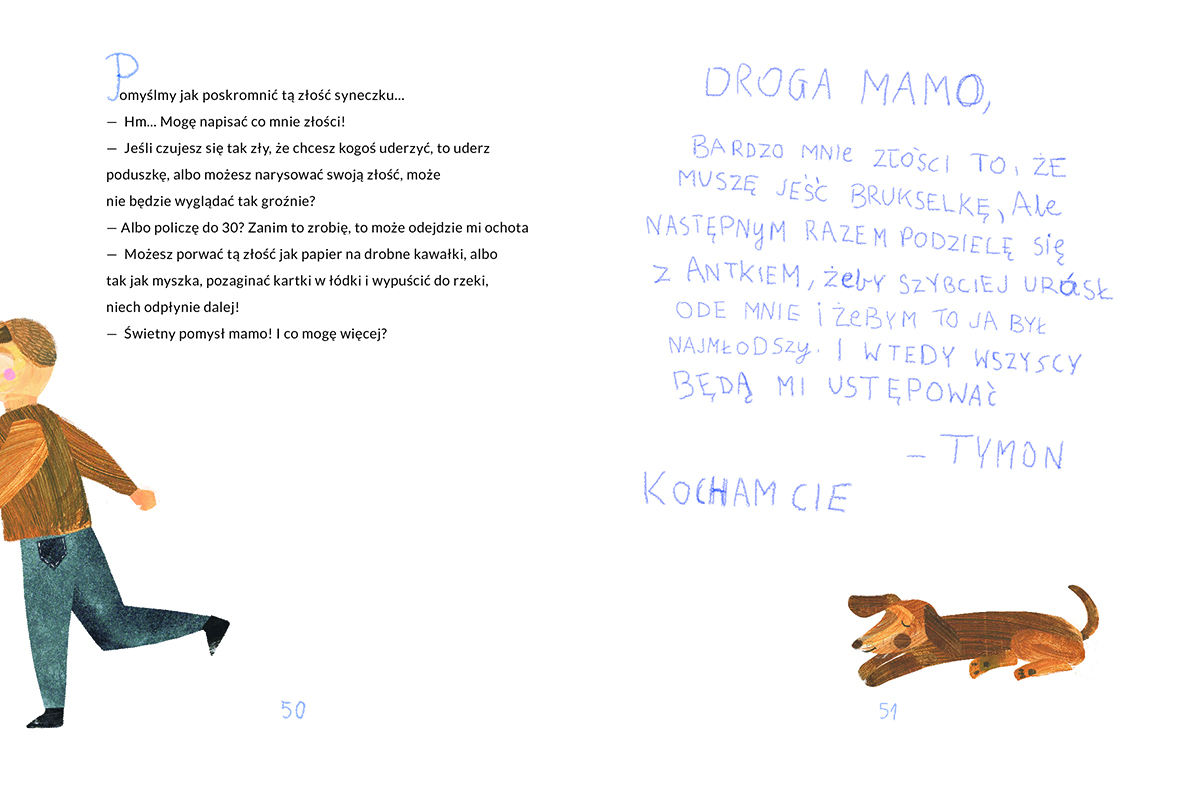 Pomyślmy jak poskromnić tą złość syneczku...
— Hm... Mogę napisać co mnie złości!
— Jeśli czujesz się tak zły, że chcesz kogoś uderzyć, to uderz
poduszkę, albo możesz narysować swoją złość, może
nie będzie wyglądać tak groźnie?
— Albo policzę do 30? Zanim to zrobię, to może odejdzie mi ochota
— Możesz porwać tą złość jak papier na drobne kawałki, albo
tak jak myszka, pozaginać kartki w łódki i wypuścić do rzeki,
niech odpłynie dalej!
— Świetny pomysł mamo! I co mogę więcej?
50
DROGA MAMO,
BARDZO MNIE ZŁOŚCI TO, ŻE
MUSZĘ JEŚĆ BRUKSELKĘ, Ale
NASTĘPNYM RAZEM PODZIELĘ SIĘ
Z ANTKIEM, żeby SZYBCIEJ URÓSŁ
ODE MNIE i ŻEBYM TO JA BYŁ
NAJMŁODSZY. I WTEDY WSZYSCY
BĘDĄ MI USTĘPOWAĆ
– TYMON
KOCHAM CIE
51